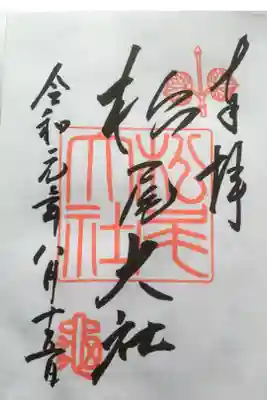 奉拝
松尾大社
松尾大社
令和元年八月十五日